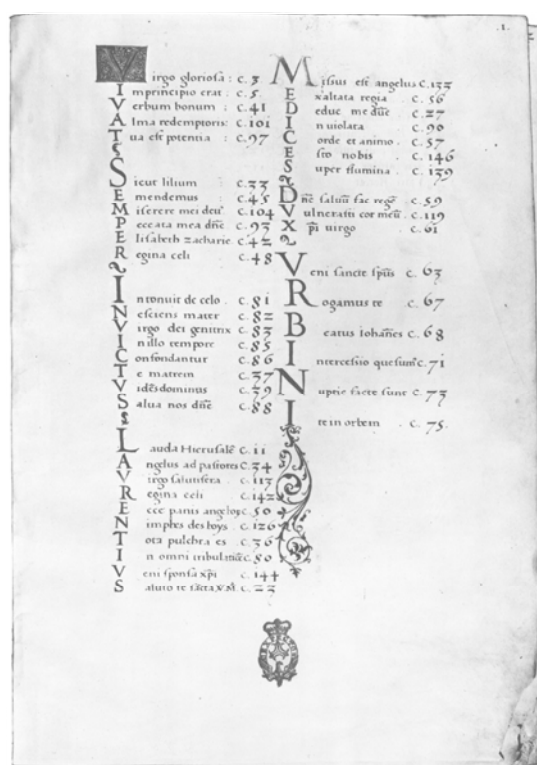 .1.
Virgo gloriosa : c. 3
Imprincipio erat : c. 5
Verbum bonum : c. 41
Alma redemptoris: c. 101
Tua est potentia : c. 97
Sicut lilium c. 33
Emendemus c. 45
Miserere mei deus c. 104
Peccata mea dñe c. 93
Elisabeth zacharie c. 42
Regina celi c. 48
Intonuit de celo . c. 81
Nesciens mater c. 82
Virgo dei genitrix c. 83
In illo tempore c. 85
Confondantur c. 86
Te matrem c. 37
Vides dominus c. 39
Salua nos dñe c. 88
Lauda Hierusalē c. 11
Angelus ad pastores c. 34
Virgo salutifera . c. 113
Regina celi c. 142
Ecce panis angelorꝫ c. 50
Nimphes des boys . c. 126
Tota pulchra es . c. 36
In omni tribulatiōe c. 80
Veni sponsa xp̄i c. 144
Saluto te sācta V M. c. 23
Missus est angelus c. 133
Exaltata regia . c. 56
Deduc me dñe c. 27
Inuiolata c. 90
Corde et animo . c. 57
Esto nobis c. 146
Super flumina . c. 139
Dñe saluū fac regē c. 59
Vulnerasti cor meū . c. 119
Xp̄i uirgo c. 61
Veni sancte sp̄us c. 63
Rogamus te c. 67
Beatus Iohañes c. 68
Intercessio quesum' c. 71
Nuptie facte sunt c. 73
Ite in orbem c. 75.